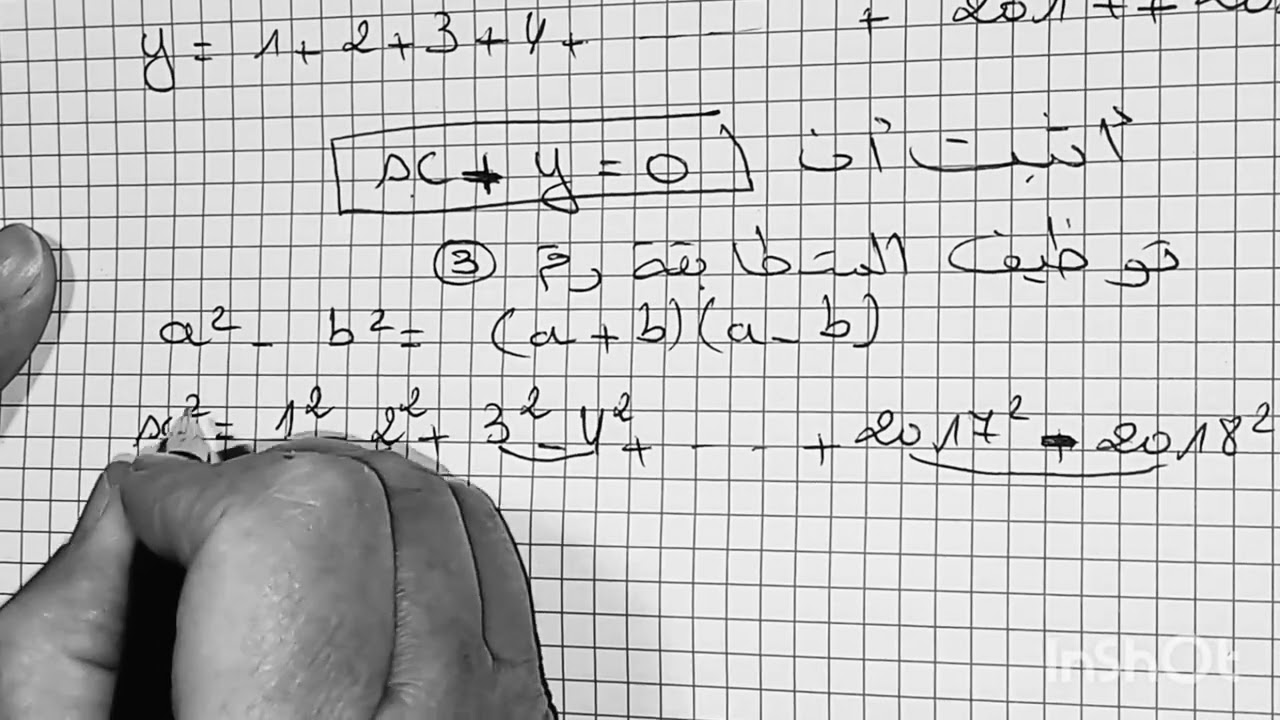 y = 1 + 2 + 3 + 4 + ------ + 2017 +
x + y = 0 أثبت أن
توظيف المتطابقة رقم ③
a² - b² = (a + b)(a - b)
x² = 1² - 2² + 3² - 4² + --- + 2017² - 2018²
InShOt